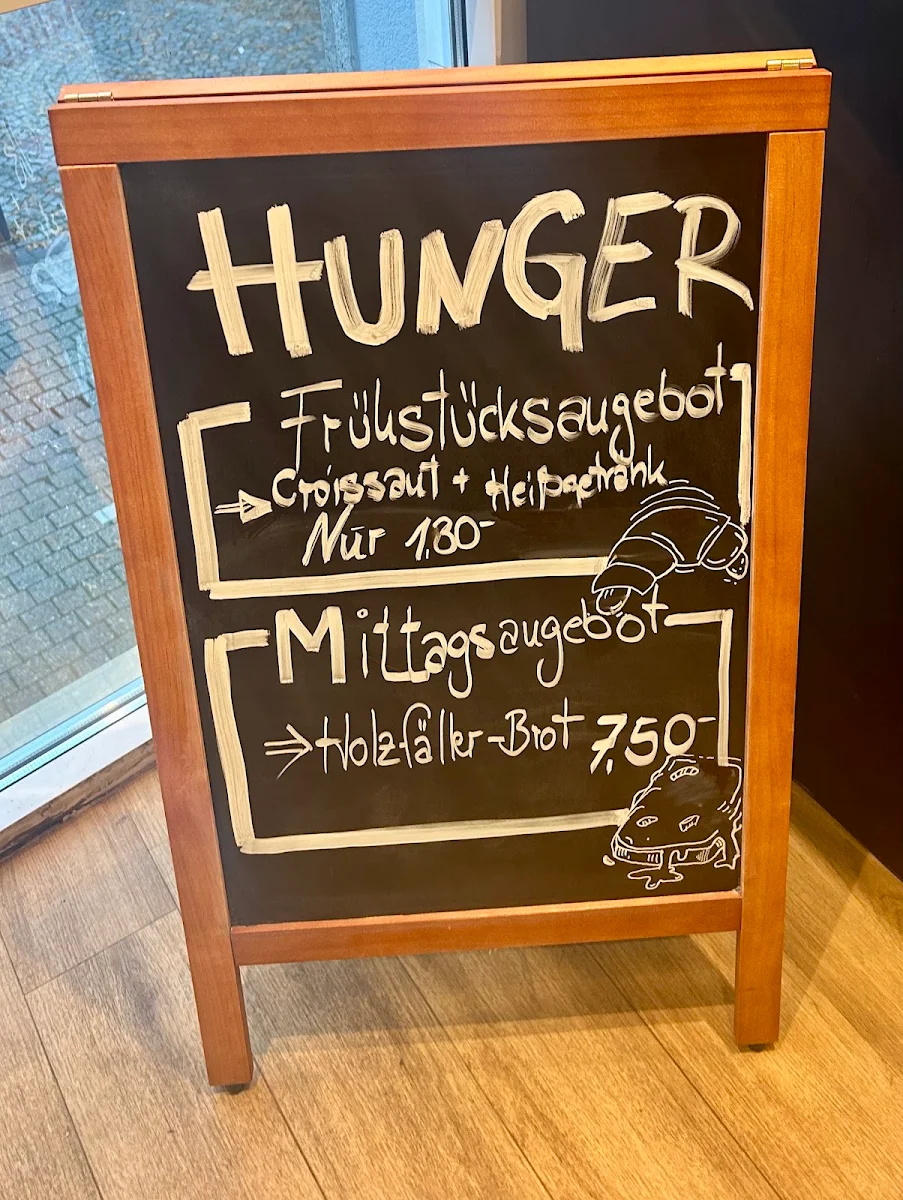 HUNGER
Frühstücksangebot
⇒ Croissant + Heißgetränk
Nur 1,80-
Mittagsangebot
⇒ Holzfäller-Brot 7,50-